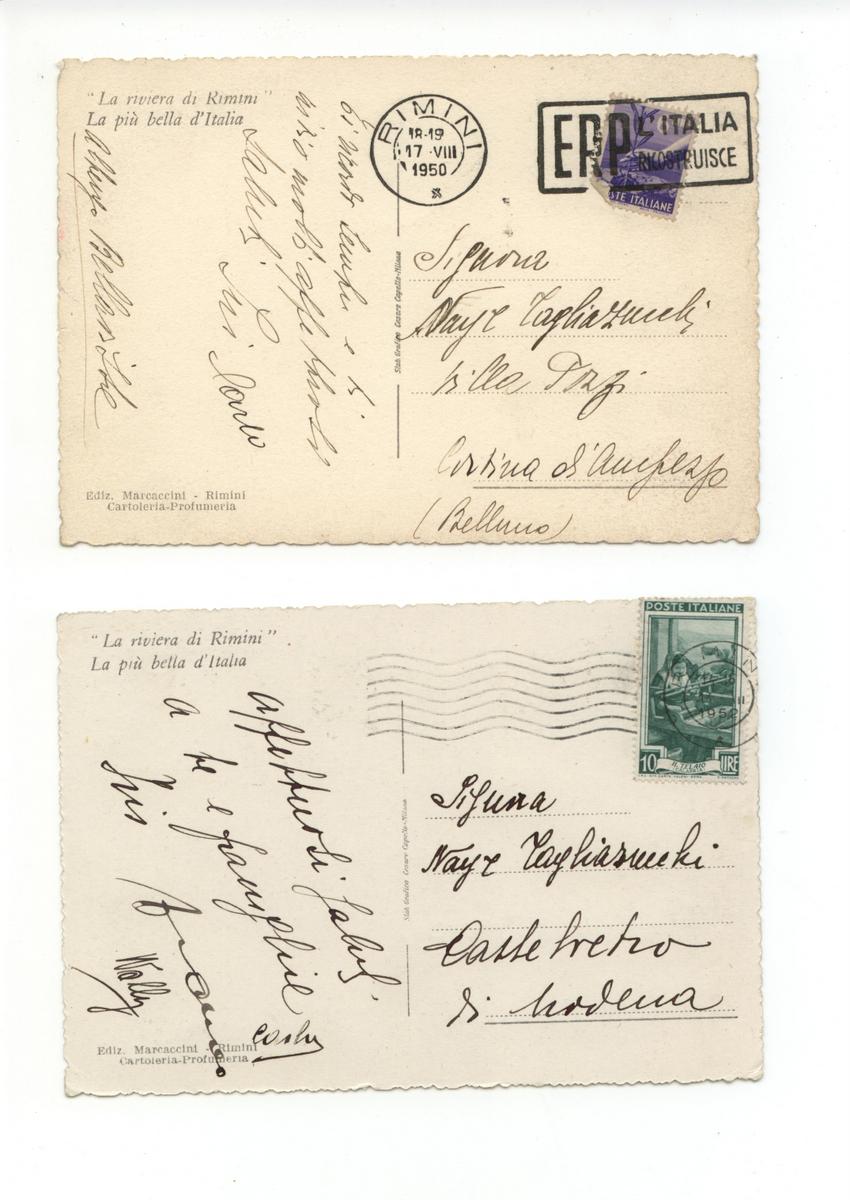 "La riviera di Rimini"
La più bella d'Italia
RIMINI
18-19
17 · VIII
1950
ERP L'ITALIA
RICOSTRUISCE
STE ITALIANE
Ti ricordo sempre e ti
Saluti
Carlo
Signora
Tagliazucchi
Villa Pozzi
Cortina d'Ampezzo
(Belluno)
Stab. Grafico Cesare Capello-Milano
Ediz. Marcaccini - Rimini
Cartoleria-Profumeria
"La riviera di Rimini"
La più bella d'Italia
POSTE ITALIANE
1952
10 IL TELAIO LIRE
Affettuosi saluti
a te e famiglia
Wally
Signora
Tagliazucchi
Castelvetro
di Modena
Stab. Grafico Cesare Capello-Milano
Ediz. Marcaccini - Rimini
Cartoleria-Profumeria